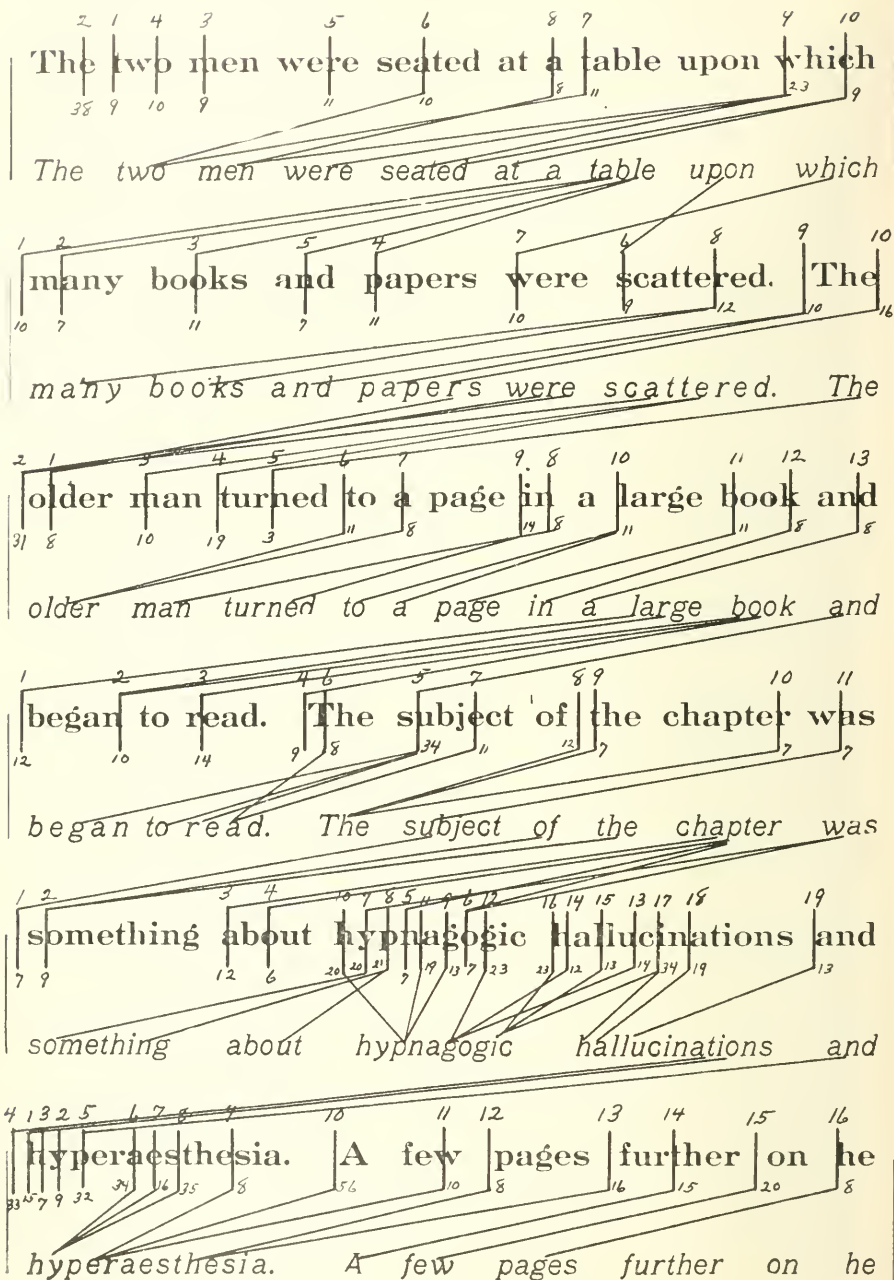 2 1 4 3 5 6 8 7 9 10
The two men were seated at a table upon which
38 9 10 9 11 10 8 11 23 9
The two men were seated at a table upon which
1 2 3 5 4 7 6 8 9 10
many books and papers were scattered. The
10 7 11 7 11 10 9 12 10 16
many books and papers were scattered. The
2 1 3 4 5 6 7 9 8 10 11 12 13
older man turned to a page in a large book and
31 8 10 19 3 11 8 14 8 11 11 8 8
older man turned to a page in a large book and
1 2 3 4 6 5 7 8 9 10 11
began to read. The subject of the chapter was
12 10 14 9 8 34 11 12 7 7 7
began to read. The subject of the chapter was
1 2 3 4 10 7 8 5 11 9 6 12 16 14 15 13 17 18 19
something about hypnagogic hallucinations and
7 9 12 6 20 20 21 7 19 13 7 23 23 12 13 14 34 19 13
something about hypnagogic hallucinations and
4 1 3 2 5 6 7 8 9 10 11 12 13 14 15 16
hyperaesthesia. A few pages further on he
33 15 7 9 32 34 16 35 8 56 10 8 16 15 20 8
hyperaesthesia. A few pages further on he